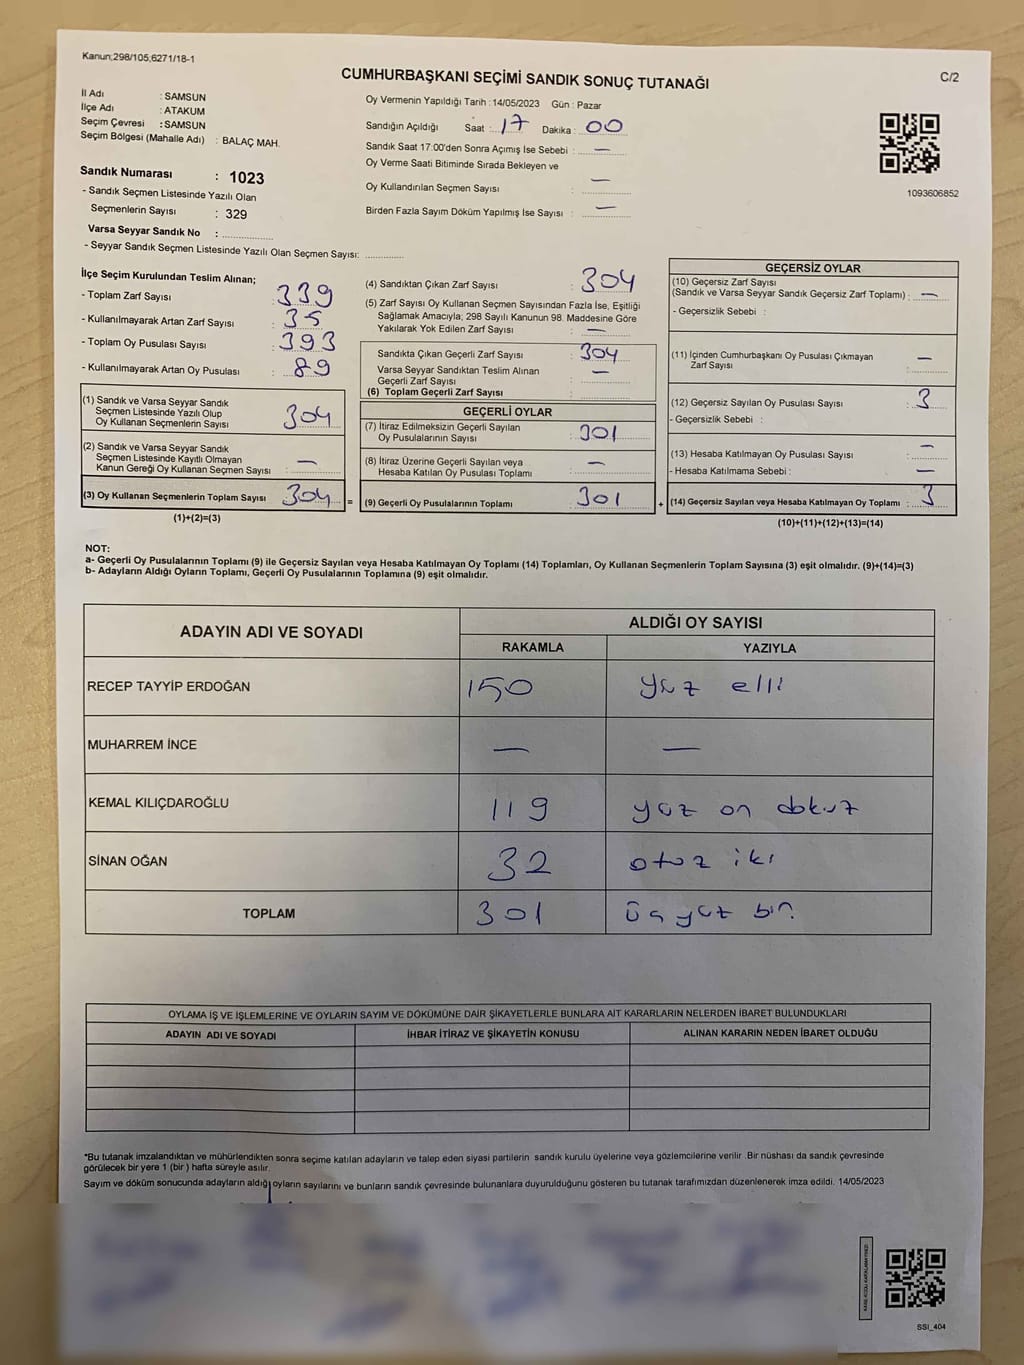 Kanun;298/105;6271/18-1
C/2
CUMHURBAŞKANI SEÇİMİ SANDIK SONUÇ TUTANAĞI
İl Adı : SAMSUN
İlçe Adı : ATAKUM
Seçim Çevresi : SAMSUN
Seçim Bölgesi (Mahalle Adı) : BALAÇ MAH.
Sandık Numarası : 1023
- Sandık Seçmen Listesinde Yazılı Olan
Seçmenlerin Sayısı : 329
Varsa Seyyar Sandık No : ..............
- Seyyar Sandık Seçmen Listesinde Yazılı Olan Seçmen Sayısı: ..............
Oy Vermenin Yapıldığı Tarih : 14/05/2023 Gün : Pazar
Sandığın Açıldığı Saat : 17 Dakika : 00
Sandık Saat 17:00'den Sonra Açımış İse Sebebi : —
Oy Verme Saati Bitiminde Sırada Bekleyen ve
Oy Kullandırılan Seçmen Sayısı : —
Birden Fazla Sayım Döküm Yapılmış İse Sayısı : —
1093606852
İlçe Seçim Kurulundan Teslim Alınan;
- Toplam Zarf Sayısı : 339
- Kullanılmayarak Artan Zarf Sayısı : 35
- Toplam Oy Pusulası Sayısı : 393
- Kullanılmayarak Artan Oy Pusulası : 89
(1) Sandık ve Varsa Seyyar Sandık
Seçmen Listesinde Yazılı Olup
Oy Kullanan Seçmenlerin Sayısı : 304
(2) Sandık ve Varsa Seyyar Sandık
Seçmen Listesinde Kayıtlı Olmayan
Kanun Gereği Oy Kullanan Seçmen Sayısı : —
(3) Oy Kullanan Seçmenlerin Toplam Sayısı : 304 =
(1)+(2)=(3)
(4) Sandıktan Çıkan Zarf Sayısı : 304
(5) Zarf Sayısı Oy Kullanan Seçmen Sayısından Fazla İse, Eşitliği
Sağlamak Amacıyla; 298 Sayılı Kanunun 98. Maddesine Göre
Yakılarak Yok Edilen Zarf Sayısı : —
Sandıkta Çıkan Geçerli Zarf Sayısı : 304
Varsa Seyyar Sandıktan Teslim Alınan
Geçerli Zarf Sayısı : —
(6) Toplam Geçerli Zarf Sayısı : ..............
GEÇERLİ OYLAR
(7) İtiraz Edilmeksizin Geçerli Sayılan
Oy Pusulalarının Sayısı : 301
(8) İtiraz Üzerine Geçerli Sayılan veya
Hesaba Katılan Oy Pusulası Toplamı : —
(9) Geçerli Oy Pusulalarının Toplamı : 301 +
GEÇERSİZ OYLAR
(10) Geçersiz Zarf Sayısı
(Sandık ve Varsa Seyyar Sandık Geçersiz Zarf Toplamı) : —
- Geçersizlik Sebebi :
(11) İçinden Cumhurbaşkanı Oy Pusulası Çıkmayan
Zarf Sayısı : —
(12) Geçersiz Sayılan Oy Pusulası Sayısı : 3
- Geçersizlik Sebebi :
(13) Hesaba Katılmayan Oy Pusulası Sayısı : —
- Hesaba Katılmama Sebebi : —
(14) Geçersiz Sayılan veya Hesaba Katılmayan Oy Toplamı : 3
(10)+(11)+(12)+(13)=(14)
NOT:
a- Geçerli Oy Pusulalarının Toplamı (9) ile Geçersiz Sayılan veya Hesaba Katılmayan Oy Toplamı (14) Toplamları, Oy Kullanan Seçmenlerin Toplam Sayısına (3) eşit olmalıdır. (9)+(14)=(3)
b- Adayların Aldığı Oyların Toplamı, Geçerli Oy Pusulalarının Toplamına (9) eşit olmalıdır.
ADAYIN ADI VE SOYADI ALDIĞI OY SAYISI
RAKAMLA YAZIYLA
RECEP TAYYİP ERDOĞAN 150 yüz elli
MUHARREM İNCE — —
KEMAL KILIÇDAROĞLU 119 yüz on dokuz
SİNAN OĞAN 32 otuz iki
TOPLAM 301 üç yüz bir
OYLAMA İŞ VE İŞLEMLERİNE VE OYLARIN SAYIM VE DÖKÜMÜNE DAİR ŞİKAYETLERLE BUNLARA AİT KARARLARIN NELERDEN İBARET BULUNDUKLARI
ADAYIN ADI VE SOYADI İHBAR İTİRAZ VE ŞİKAYETİN KONUSU ALINAN KARARIN NEDEN İBARET OLDUĞU
*Bu tutanak imzalandıktan ve mühürlendikten sonra seçime katılan adayların ve talep eden siyasi partilerin sandık kurulu üyelerine veya gözlemcilerine verilir .Bir nüshası da sandık çevresinde
görülecek bir yere 1 (bir ) hafta süreyle asılır.
Sayım ve döküm sonucunda adayların aldığı oyların sayılarını ve bunların sandık çevresinde bulunanlara duyurulduğunu gösteren bu tutanak tarafımızdan düzenlenerek imza edildi. 14/05/2023
SSI_404